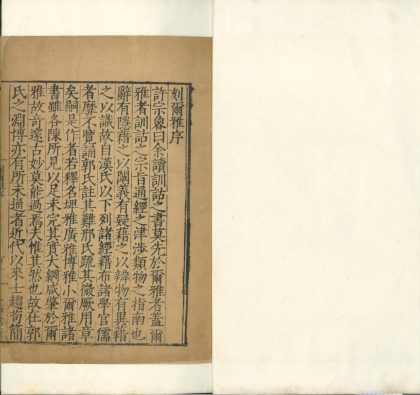 刻爾雅序
許宗魯曰余讀訓詁之書莫先於爾雅者蓋爾
雅者訓詁之宗旨通經之津涉類物之指南也
辭有隱藉之以闡義有疑藉之以韙物有異藉
之以識故自漢氏以下列諸經藉布諸學官儒
者靡不覽誦郭氏註其難邢氏疏其微厥用章
矣嗣是作者若釋名埤雅廣雅博雅小爾雅諸
書雖各陳所見以足未完其實大綱咸肇於爾
雅故奇邃古妙莫能過焉夫惟其然也故在郭
氏之淵博亦有所未通者近代以來士趨苟簡